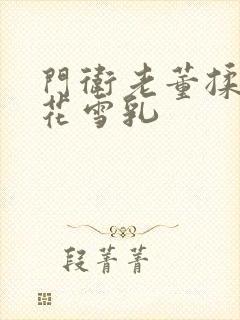 門衛老董揉
花雪乳
段菁菁